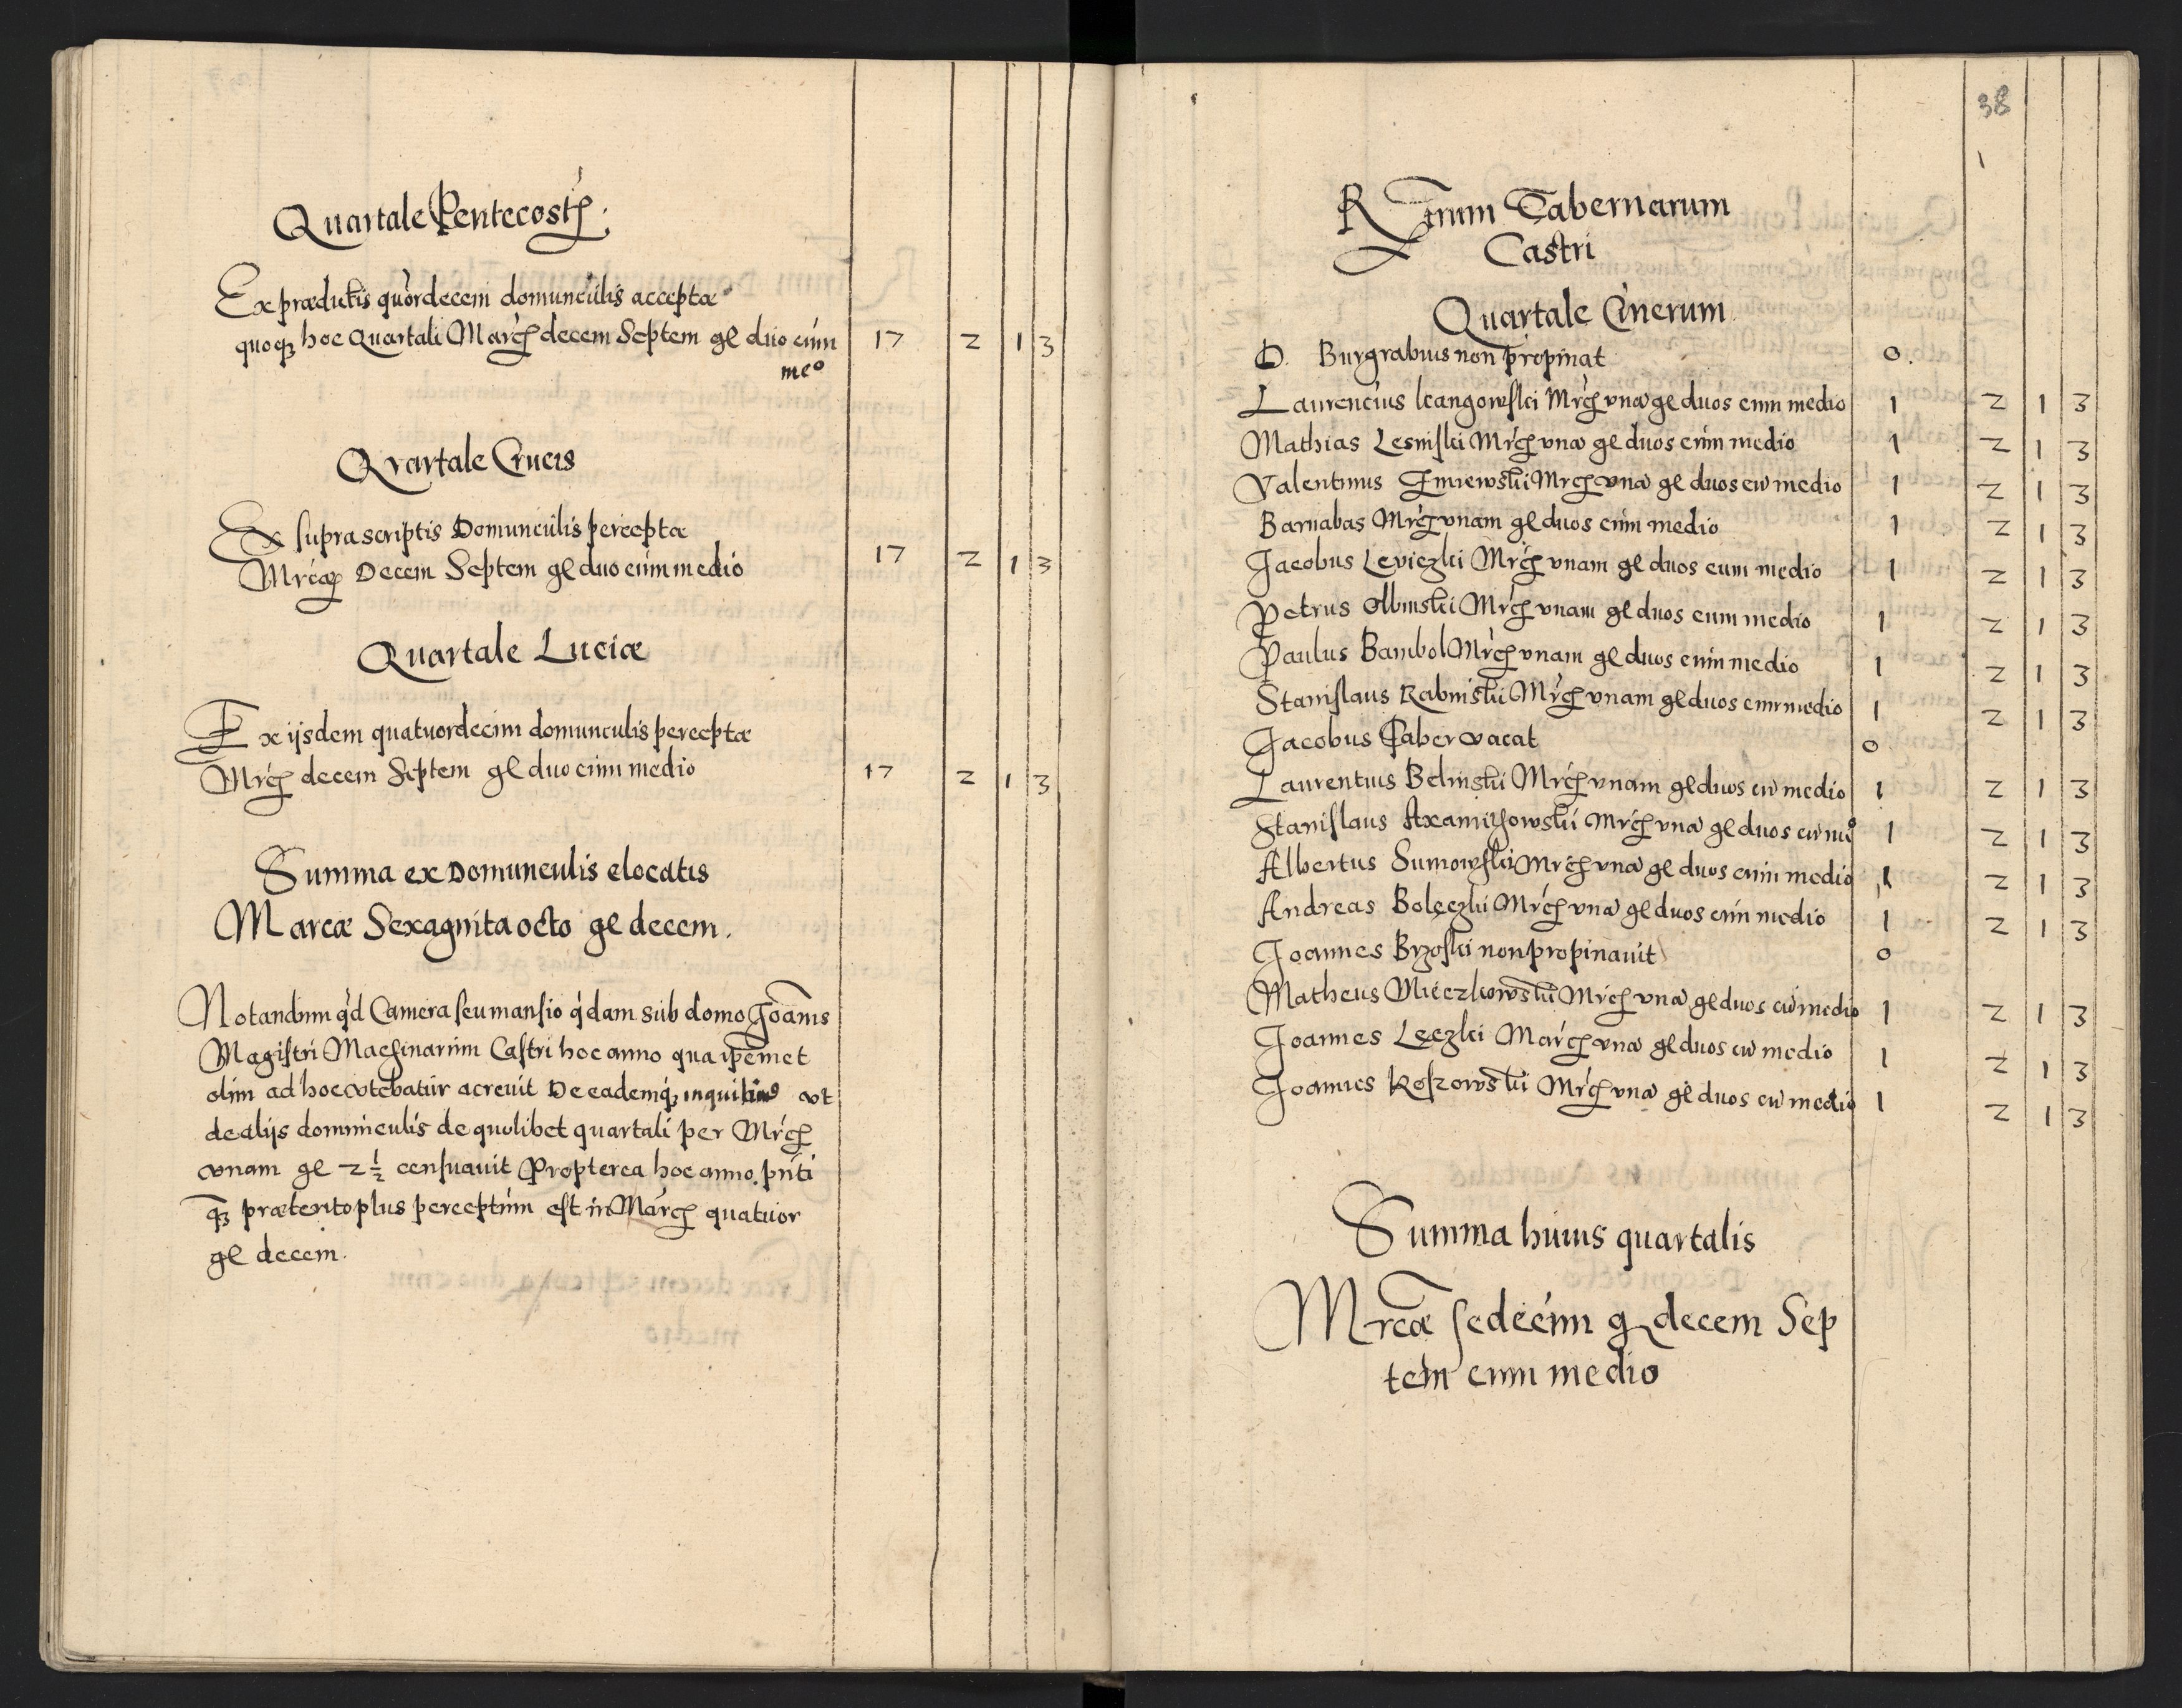 Quartale Pentecostꝭ.
Ex prædictis quordecem domunculis acceptæ
quoqꝫ hoc quartali March decem Septem gl duo cum 17 2 1 3
meo
Qvartale Crucis
Ex suprascriptis Domunculis perceptæ
Mrcaꝝ Decem Septem gl duo cum medio 17 2 1 3
Quartale Luciæ
Ex ijsdem quatuordecim domunculis perceptæ
Mrch decem Septem gl duo cum medio 17 2 1 3
Summa ex Domunculis elocatis
Marcæ Sexaginta octo gl decem.
Notandum qd Camera seu mansio qdam sub domo Joanis
Magistri Machinarum Castri hoc anno qua ipsemet
olim ad hoc vtebatur acrevit De eademqꝫ vt
de alijs domunculis de quolibet quartali per Mrch
vnam gl 2 1/2 censuavit Propterea hoc anno pnti
qꝫ præterito plus perceptum est in March quatuor
gl decem.
38
Rgrum Tabernarum
Castri
Quartale Cinerum
D. Burgrabius non propinat 0.
Laurencius Icangowski Mrch vna gl duos cum medio 1 2 1 3
Mathias Lesniski Mrch vna gl duos cum medio 1 2 1 3
Valentinus Mrch vna gl duos cu medio 1 2 1 3
Barnabas Mrch vnam gl duos cum medio 1 2 1 3
Jacobus Leviczki Mrch vnam gl duos cum medio 1 2 1 3
Petrus Olbinski Mrch vnam gl duos cum medio 1 2 1 3
Paulus Bambol Mrch vnam gl duos cum medio 1 2 1 3
Stanislaus Rabinski Mrch vnam gl duos cum medio 1 2 1 3
Jacobus Faber vacat 0
Laurentius Belinski Mrch vnam gl duos cu medio 1 2 1 3
Stanislaus Axamithowski Mrch vna gl duos cu mo 1 2 1 3
Albertus Sumowski Mrch vna gl duos cum medio 1 2 1 3
Andreas Boleczki Mrch vna gl duos cum medio 1 2 1 3
Joannes Brzoski non propinauit 0
Matheus Mieczkowski Mrch vna gl duos cu medio 1 2 1 3
Joannes Leczki March vna gl duos cu medio 1 2 1 3
Joannes Koszowski Mrch vna gl duos cu medio 1 2 1 3
Summa huius quartalis
Mrcæ sedecim g decem Sep
tem cum medio